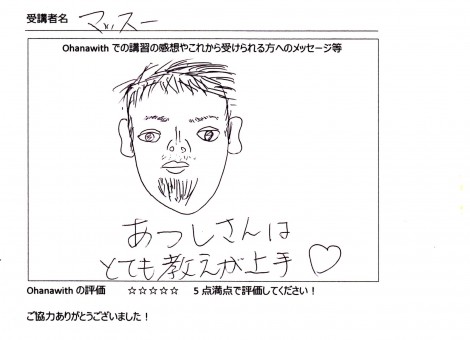 受講者名 マッスー
Ohanawith での講習の感想やこれから受けられる方へのメッセージ等
あつしさんは
とても教えが上手♡
Ohanawith の評価 ☆☆☆☆☆ 5 点満点で評価してください！
ご協力ありがとうございました！